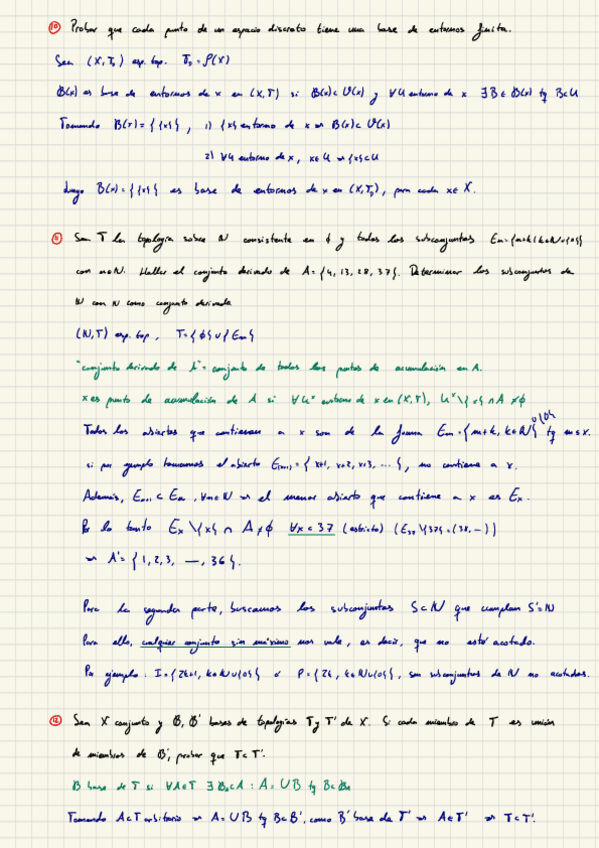 10 Probar que cada punto de un espacio discreto tiene una base de entornos finita.
Sea (X, T_D) esp. top. T_D = P(X)
B(x) es base de entornos de x en (X,T) si B(x) ⊂ U(x) y ∀U entorno de x ∃B ∈ B(x) tq B⊂U
Tomando B(x) = {{x}}, 1) {x} entorno de x ⇒ B(x) ⊂ U(x)
2) ∀U entorno de x, x∈U ⇒ {x}⊂U
Luego B(x) = {{x}} es base de entornos de x en (X,T_D), para cada x∈X.
11 Sea T la topología sobre N consistente en ϕ y todos los subconjuntos Em={m+k | k∈N∪{0}}
con m∈N. Hallar el conjunto derivado de A={4, 13, 28, 37}. Determinar los subconjuntos de
N con N como conjunto derivado
(N,T) esp. top, T={ϕ}∪{Em}
"conjunto derivado de A" = conjunto de todos los puntos de acumulación en A.
x es punto de acumulación de A si ∀Uˣ entorno de x en (X,T), Uˣ\{x} ∩ A ≠ ϕ
Todos los abiertos que contienen a x son de la forma Em={m+k, k∈N∪{0}} tq m≤x.
si por ejemplo tomamos el abierto Ex+1 = {x+1, x+2, x+3, ...}, no contiene a x.
Además, Em+1 ⊂ Em, ∀m∈N ⇒ el menor abierto que contiene a x es Ex.
Por lo tanto Ex\{x} ∩ A ≠ ϕ ∀x<37 (estricto) (E37\{37}={38, –})
⇒ A' = {1, 2, 3, —, 36}.
Para la segunda parte, buscamos los subconjuntos S⊂N que cumplan S'=N
Para ello, cualquier conjunto sin máximo nos vale, es decir, que no esté acotado.
Por ejemplo: I={2k+1, k∈N∪{0}} o P={2k, k∈N∪{0}}, son subconjuntos de N no acotados.
12 Sea X conjunto y B, B' bases de topologías T y T' de X. Si cada miembro de T es unión
de miembros de B', probar que T⊂T'.
B base de T si ∀A∈T ∃ : A = ∪B tq
Tomando A∈T arbitrario ⇒ A=∪B tq B∈B', como B' base de T' ⇒ A∈T' ⇒ T⊂T'.